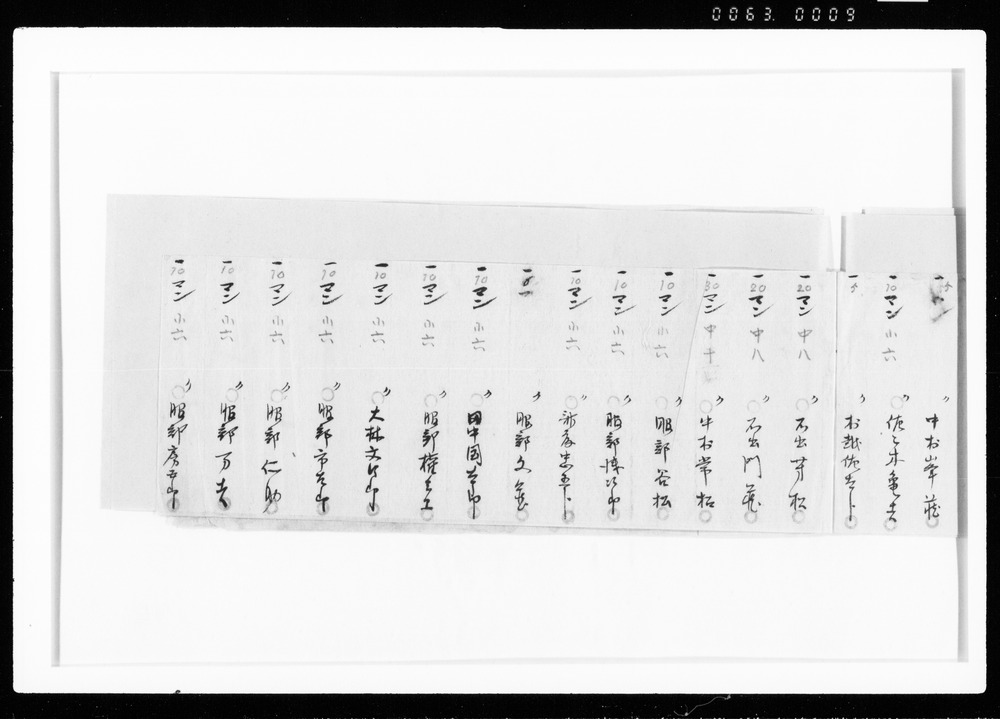 0063.0009
一 〃 中村峯蔵
一 10マン 小六 〃 佐々木亀吉
一 〃 村越佐吉
一 20マン 中八 〃 石出芳松
一 30マン 中八 〃 石出門蔵
一 30マン 中十 〃 中村常松
一 10マン 小六 〃 服部谷松
一 10マン 小六 〃 服部
一 10マン 小六 〃
一 〃 服部文蔵
一 10マン 小六 〃 田中国太郎
一 10マン 小六 〃 服部権
一 10マン 小六 〃 大林文次郎
一 10マン 小六 〃 服部市太郎
一 10マン 小六 〃 服部仁助
一 10 マン 小六 〃 服部万吉
一 10マン 小六 〃 服部房五郎